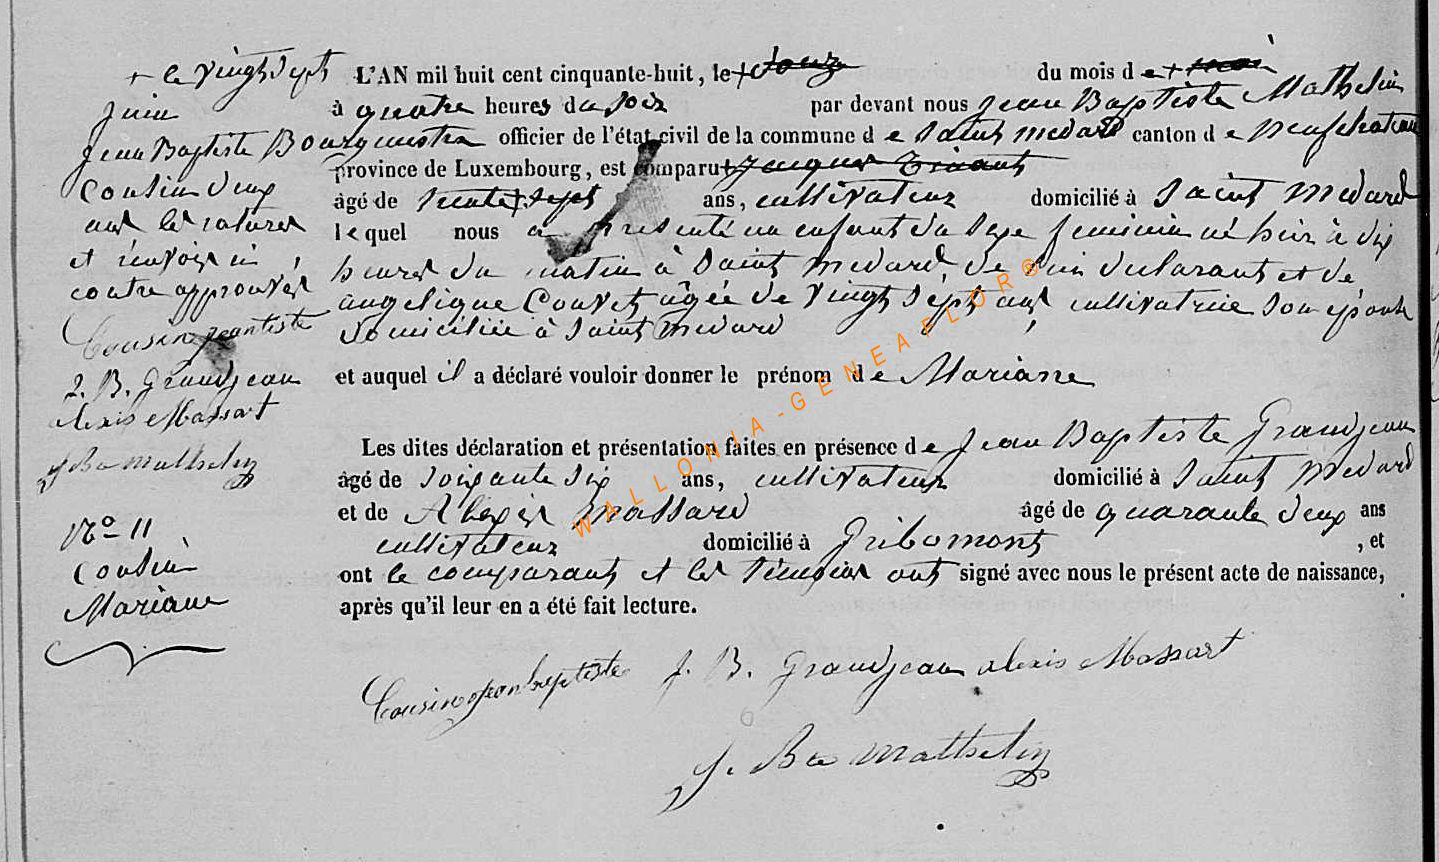 + le vingt sept
juin
Jean Baptiste Bourgmestre
Cousin deux
ans les ratures
et renvois ci
contre approuvés
Cousin jean btiste
J. B. Grandjean
alexis Massart
J Bte Mathelin
No 11
Cousin
Mariane
L'AN mil huit cent cinquante-huit, le + douze du mois de + mai
à quatre heures du soir par devant nous Jean Baptiste Mathelin
officier de l'état civil de la commune de Saint medard canton de Neufchateau
province de Luxembourg, est comparu + Jacques
âgé de trente + sept ans, cultivateur domicilié à Saint medard
lequel nous a présenté un enfant du sexe feminin né hier à dix
heures du matin à Saint medard, de lui déclarant et de
angelique Couvet âgée de vingt sept ans cultivatrice son épouse
domiciliée à Saint medard
et auquel il a déclaré vouloir donner le prénom de Mariane
Les dites déclaration et présentation faites en présence de Jean Baptiste Grandjean
âgé de soixante six ans, cultivateur domicilié à Saint medard
et de Alexis massard âgé de quarante deux ans
cultivateur domicilié à Gribomont, et
ont le comparant et les témoins ont signé avec nous le présent acte de naissance,
après qu'il leur en a été fait lecture.
Cousin jean baptiste J. B. Grandjean alexis Massart
J. Bte Mathelin
WALLONIA-GENEAFLOR®